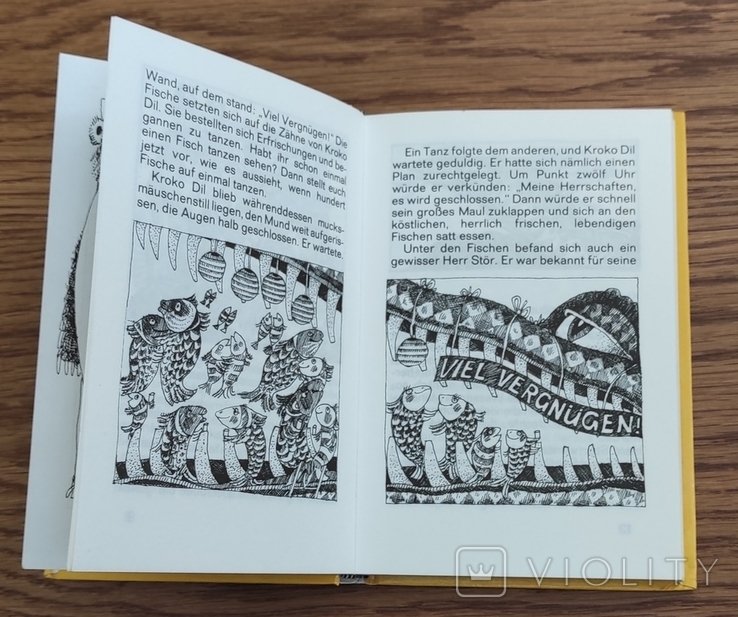 Wand, auf dem stand: „Viel Vergnügen!" Die
Fische setzten sich auf die Zähne von Kroko
Dil. Sie bestellten sich Erfrischungen und be-
gannen zu tanzen. Habt ihr schon einmal
einen Fisch tanzen sehen? Dann stellt euch
jetzt vor, wie es aussieht, wenn hundert
Fische auf einmal tanzen.
Kroko Dil blieb währenddessen mucks-
mäuschenstill liegen, den Mund weit aufgeris-
sen, die Augen halb geschlossen. Er wartete.
Ein Tanz folgte dem anderen, und Kroko Dil
wartete geduldig. Er hatte sich nämlich einen
Plan zurechtgelegt. Um Punkt zwölf Uhr
würde er verkünden: „Meine Herrschaften,
es wird geschlossen." Dann würde er schnell
sein großes Maul zuklappen und sich an den
köstlichen, herrlich frischen, lebendigen
Fischen satt essen.
Unter den Fischen befand sich auch ein
gewisser Herr Stör. Er war bekannt für seine
VIEL VERGNÜGEN!
VIOLITY